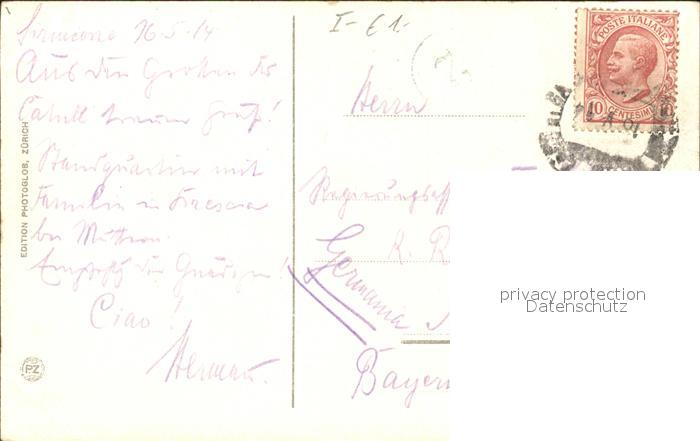 Sirmione 16.5.14
Aus den Grotten des
Catull treuen Gruß!
Standquartier mit
Familie in
bei Muttern.
Empfehlg der Gnädigen!
Ciao!
Herman.
EDITION PHOTOGLOB, ZÜRICH
PZ
I-61-
POSTE ITALIANE
10 CENTESIMI 10
Herrn
Regierungsass
K. R
Germania
Bayern
privacy protection
Datenschutz